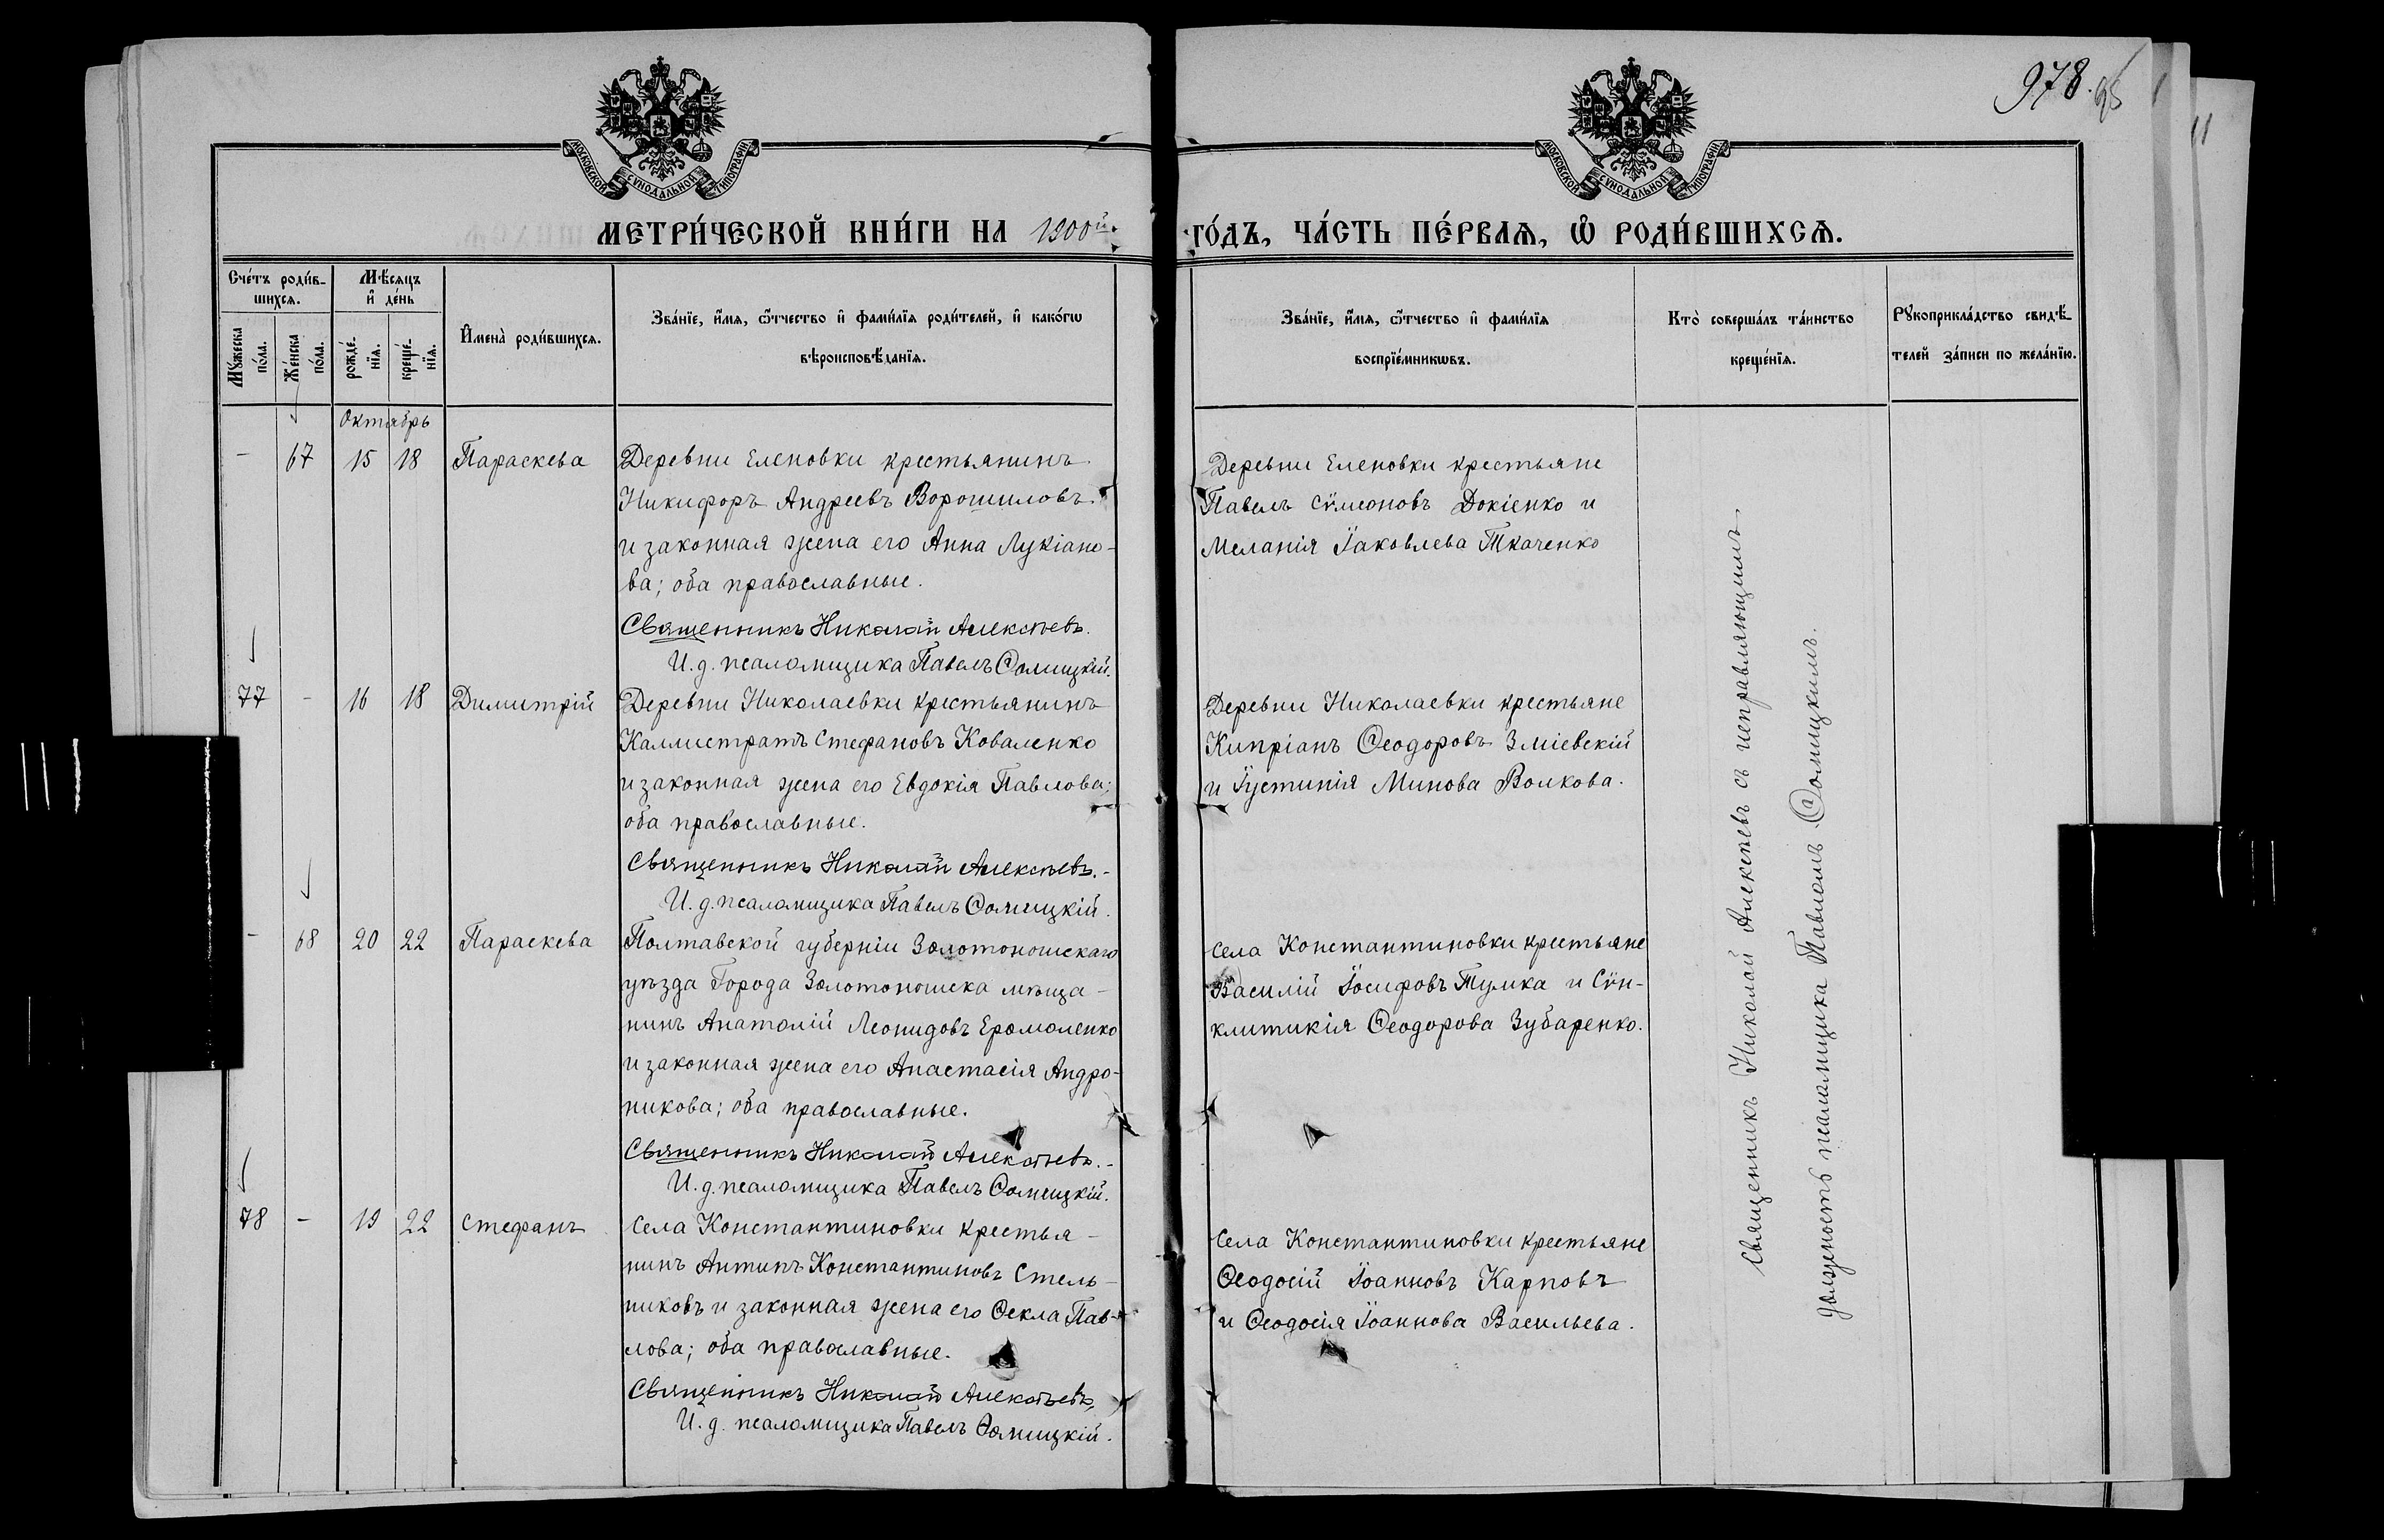 978.
МОСКОВСКОЙ СѴНОДАЛЬНОЙ ТИПОГРАФІИ
МОСКОВСКОЙ СѴНОДАЛЬНОЙ ТИПОГРАФІИ
МЕТРИ́ЧЕСКОЙ КНИ́ГИ НА 1900й
ГО́ДЪ, ЧА́СТЬ ПЕ́РВАѦ, Ѡ҆ РОДИ́ВШИХСѦ.
Сче́тъ роди́в-
шихсѧ.
Мꙋ́жеска по́ла.
Же́нска по́ла.
Мѣ́сяцъ
и҆ де́нь
рожде́-нїѧ.
креще́-нїѧ.
И҆мена̀ роди́вшихсѧ.
Зва́нїе, и҆́мѧ, ѻ҆́тчество и҆ фами́лїѧ роди́телей, и҆ како́гѡ
вѣроисповѣ́данїѧ.
Зва́нїе, и҆́мѧ, ѻ҆́тчество и҆ фами́лїѧ
воспрїе́мникѡвъ.
Кто̀ соверша́лъ та́инство
креще́нїѧ.
Рꙋкоприкла́дство свидѣ́-
телей за́писи по жела́нїю.
Октябрь
- 67 15 18 Параскева
Деревни Еленовки крестьянинъ
Никифоръ Андреевъ Ворошиловъ
и законная жена его Анна Лукіано-
ва; оба православные.
Священникъ Николай Алексѣевъ.
И. д. псаломщика Павелъ Ѳомицкій.
Деревни Еленовки крестьяне
Павелъ Сѵмеоновъ Докіенко и
Меланія Іаковлева Ткаченко
77 - 16 18 Димитрій
Деревни Николаевки крестьянинъ
Каллистратъ Стефановъ Коваленко
и законная жена его Евдокія Павлова;
оба православные.
Священникъ Николай Алексѣевъ.-
И. д. псаломщика Павелъ Ѳомицкій.
Деревни Николаевки крестьяне
Кипріанъ Ѳеодоровъ Зміевскій
и Іустинія Минова Волкова.
- 68 20 22 Параскева
Полтавской губерніи Золотоношскаго
уѣзда Города Золотоношска мѣща-
нинъ Анатолій Леонидовъ Ермоленко
и законная жена его Анастасія Андро-
никова; оба православные.
Священникъ Николай Алексѣевъ.-
И. д. псаломщика Павелъ Ѳомицкій.
Села Константиновки крестьяне
Василій Іосифовъ Тумка и Сѵн-
клитикія Ѳеодорова Зубаренко.
78 - 19 22 Стефанъ
Села Константиновки крестья-
нинъ Антипъ Константиновъ Стель-
никовъ и законная жена его Ѳекла Пав-
лова; оба православные.
Священникъ Николай Алексѣевъ,
И. д. псаломщика Павелъ Ѳомицкій.
Села Константиновки крестьяне
Ѳеодосій Іоанновъ Карповъ
и Ѳеодосія Іоаннова Васильева.
Священникъ Николай Алексѣевъ съ исправляющимъ
должность псаломщика Павломъ Ѳомицкимъ.